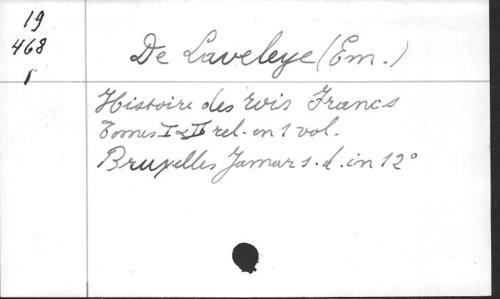 19
468
De Laveleye (Em.)
Histoire des rois Francs
Tomes I & II rel. en 1 vol.
Bruxelles Jamar s. d. in 12°